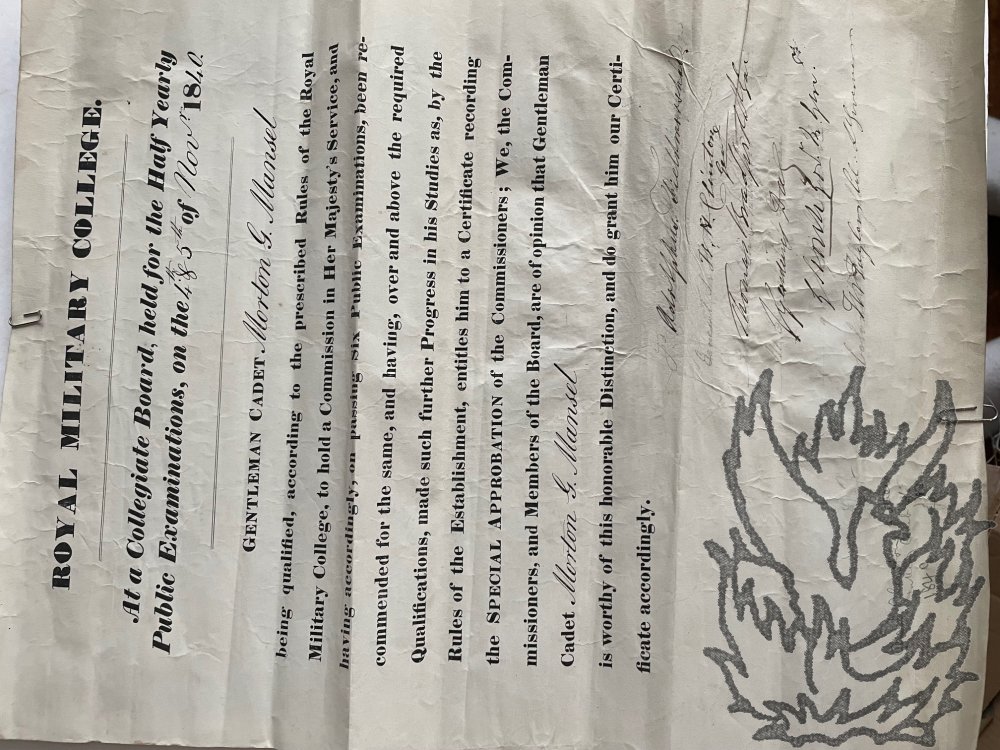 ROYAL MILITARY COLLEGE.
At a Collegiate Board, held for the Half Yearly
Public Examinations, on the 4th & 5th of Novr. 1840.
GENTLEMAN CADET Morton G. Mansel
being qualified, according to the prescribed Rules of the Royal
Military College, to hold a Commission in Her Majesty's Service, and
having accordingly, on passing Six Public Examinations, been re-
commended for the same, and having, over and above the required
Qualifications, made such further Progress in his Studies as, by the
Rules of the Establishment, entitles him to a Certificate recording
the SPECIAL APPROBATION of the Commissioners; We, the Com-
missioners, and Members of the Board, are of opinion that Gentleman
Cadet Morton G. Mansel
is worthy of this honorable Distinction, and do grant him our Certi-
ficate accordingly.
W. H. Clinton